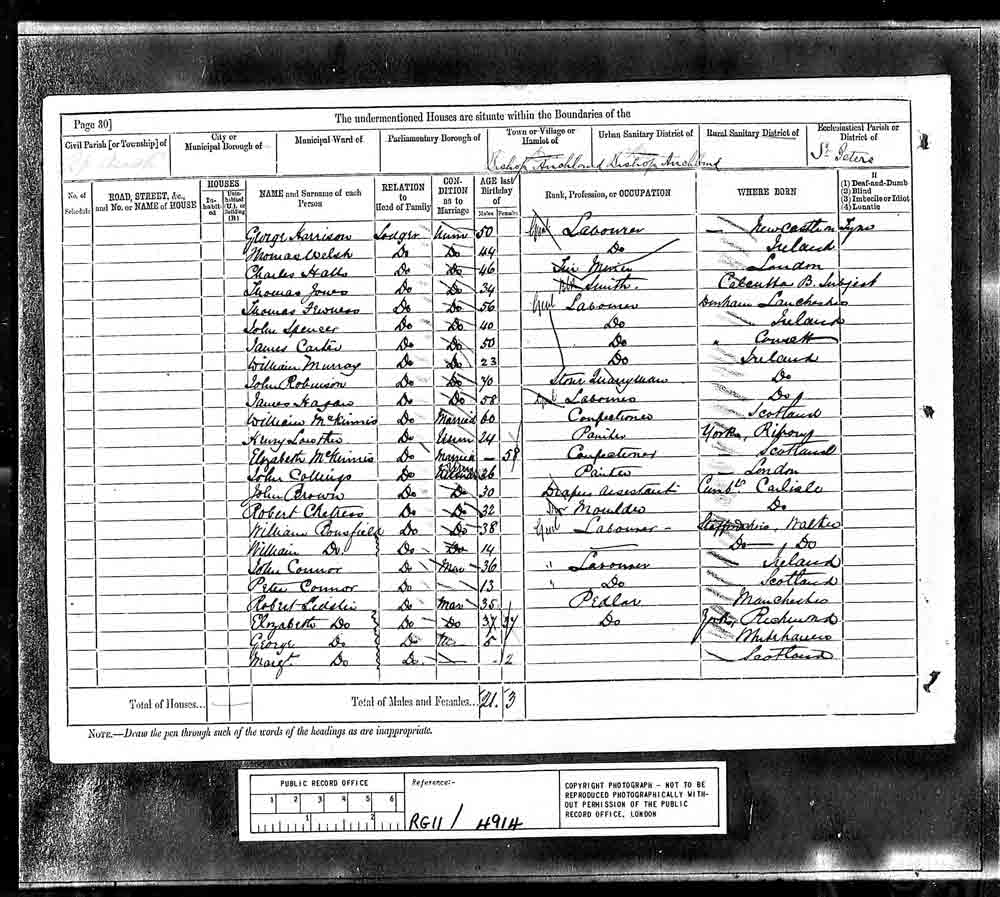 Page 30]
The undermentioned Houses are situate within the Boundaries of the
Civil Parish [or Township] of
City or Municipal Borough of
Municipal Ward of
Parliamentary Borough of
Town or Village or Hamlet of
Urban Sanitary District of
Rural Sanitary District of
Ecclesiastical Parish or District of
Bishop Auckland Bishop Auckland St. Peters
No. of Schedule
ROAD, STREET, &c., and No. or NAME of HOUSE
HOUSES
Inhabited
Uninhabited (U.), or Building (B.)
NAME and Surname of each Person
RELATION to Head of Family
CONDITION as to Marriage
AGE last Birthday of
Males Females
Rank, Profession, or OCCUPATION
WHERE BORN
If
(1) Deaf-and-Dumb
(2) Blind
(3) Imbecile or Idiot
(4) Lunatic
George Harrison Lodger Unm 50 Genl Labourer Newcastle on Tyne
Thomas Welsh Do Do 44 Do Ireland
Charles Halls Do Do 46 Miner London
Thomas Jones Do Do 34 Smith Calcutta B. Subject
Thomas Do Do 56 Genl Labourer Durham Lanchester
John Spencer Do Do 40 Do Ireland
James Carter Do Do 50 Do " Consett
William Murray Do Do 23 Do Ireland
John Robinson Do Do 70 Stone Quarryman Do
James Hagan Do Do 58 Genl Labourer Do
William McKinnis Do Married 60 Confectioner Scotland
Henry Lowther Do Unm 24 Painter Yorks, Ripon
Elizabeth McKinnis Do Married – 58 Confectioner Scotland
John Collings Do 26 Painter London
John Brown Do Do 30 Drapers assistant Cumbld Carlisle
Robert Do Do 32 Moulder Do
William Bousfield Do Do 38 Genl Labourer Staffordshire, Walker
William Do Do Do 14 Do Do
John Connor Do Mar 36 " Labourer Ireland
Peter Connor Do 13 " Do Scotland
Robert Do Mar 35 Pedlar Manchester
Elizabeth Do Do Do 37 Do Yorks, Richmond
George Do Do 5 Whitehaven
Margt Do Do — 2 Scotland
Total of Houses...
Total of Males and Females... 21 3
NOTE.—Draw the pen through such of the words of the headings as are inappropriate.
PUBLIC RECORD OFFICE
1 2 3 4 5 6
1 2
Reference:-
RG11/ 4914
COPYRIGHT PHOTOGRAPH - NOT TO BE
REPRODUCED PHOTOGRAPHICALLY WITH-
OUT PERMISSION OF THE PUBLIC
RECORD OFFICE, LONDON